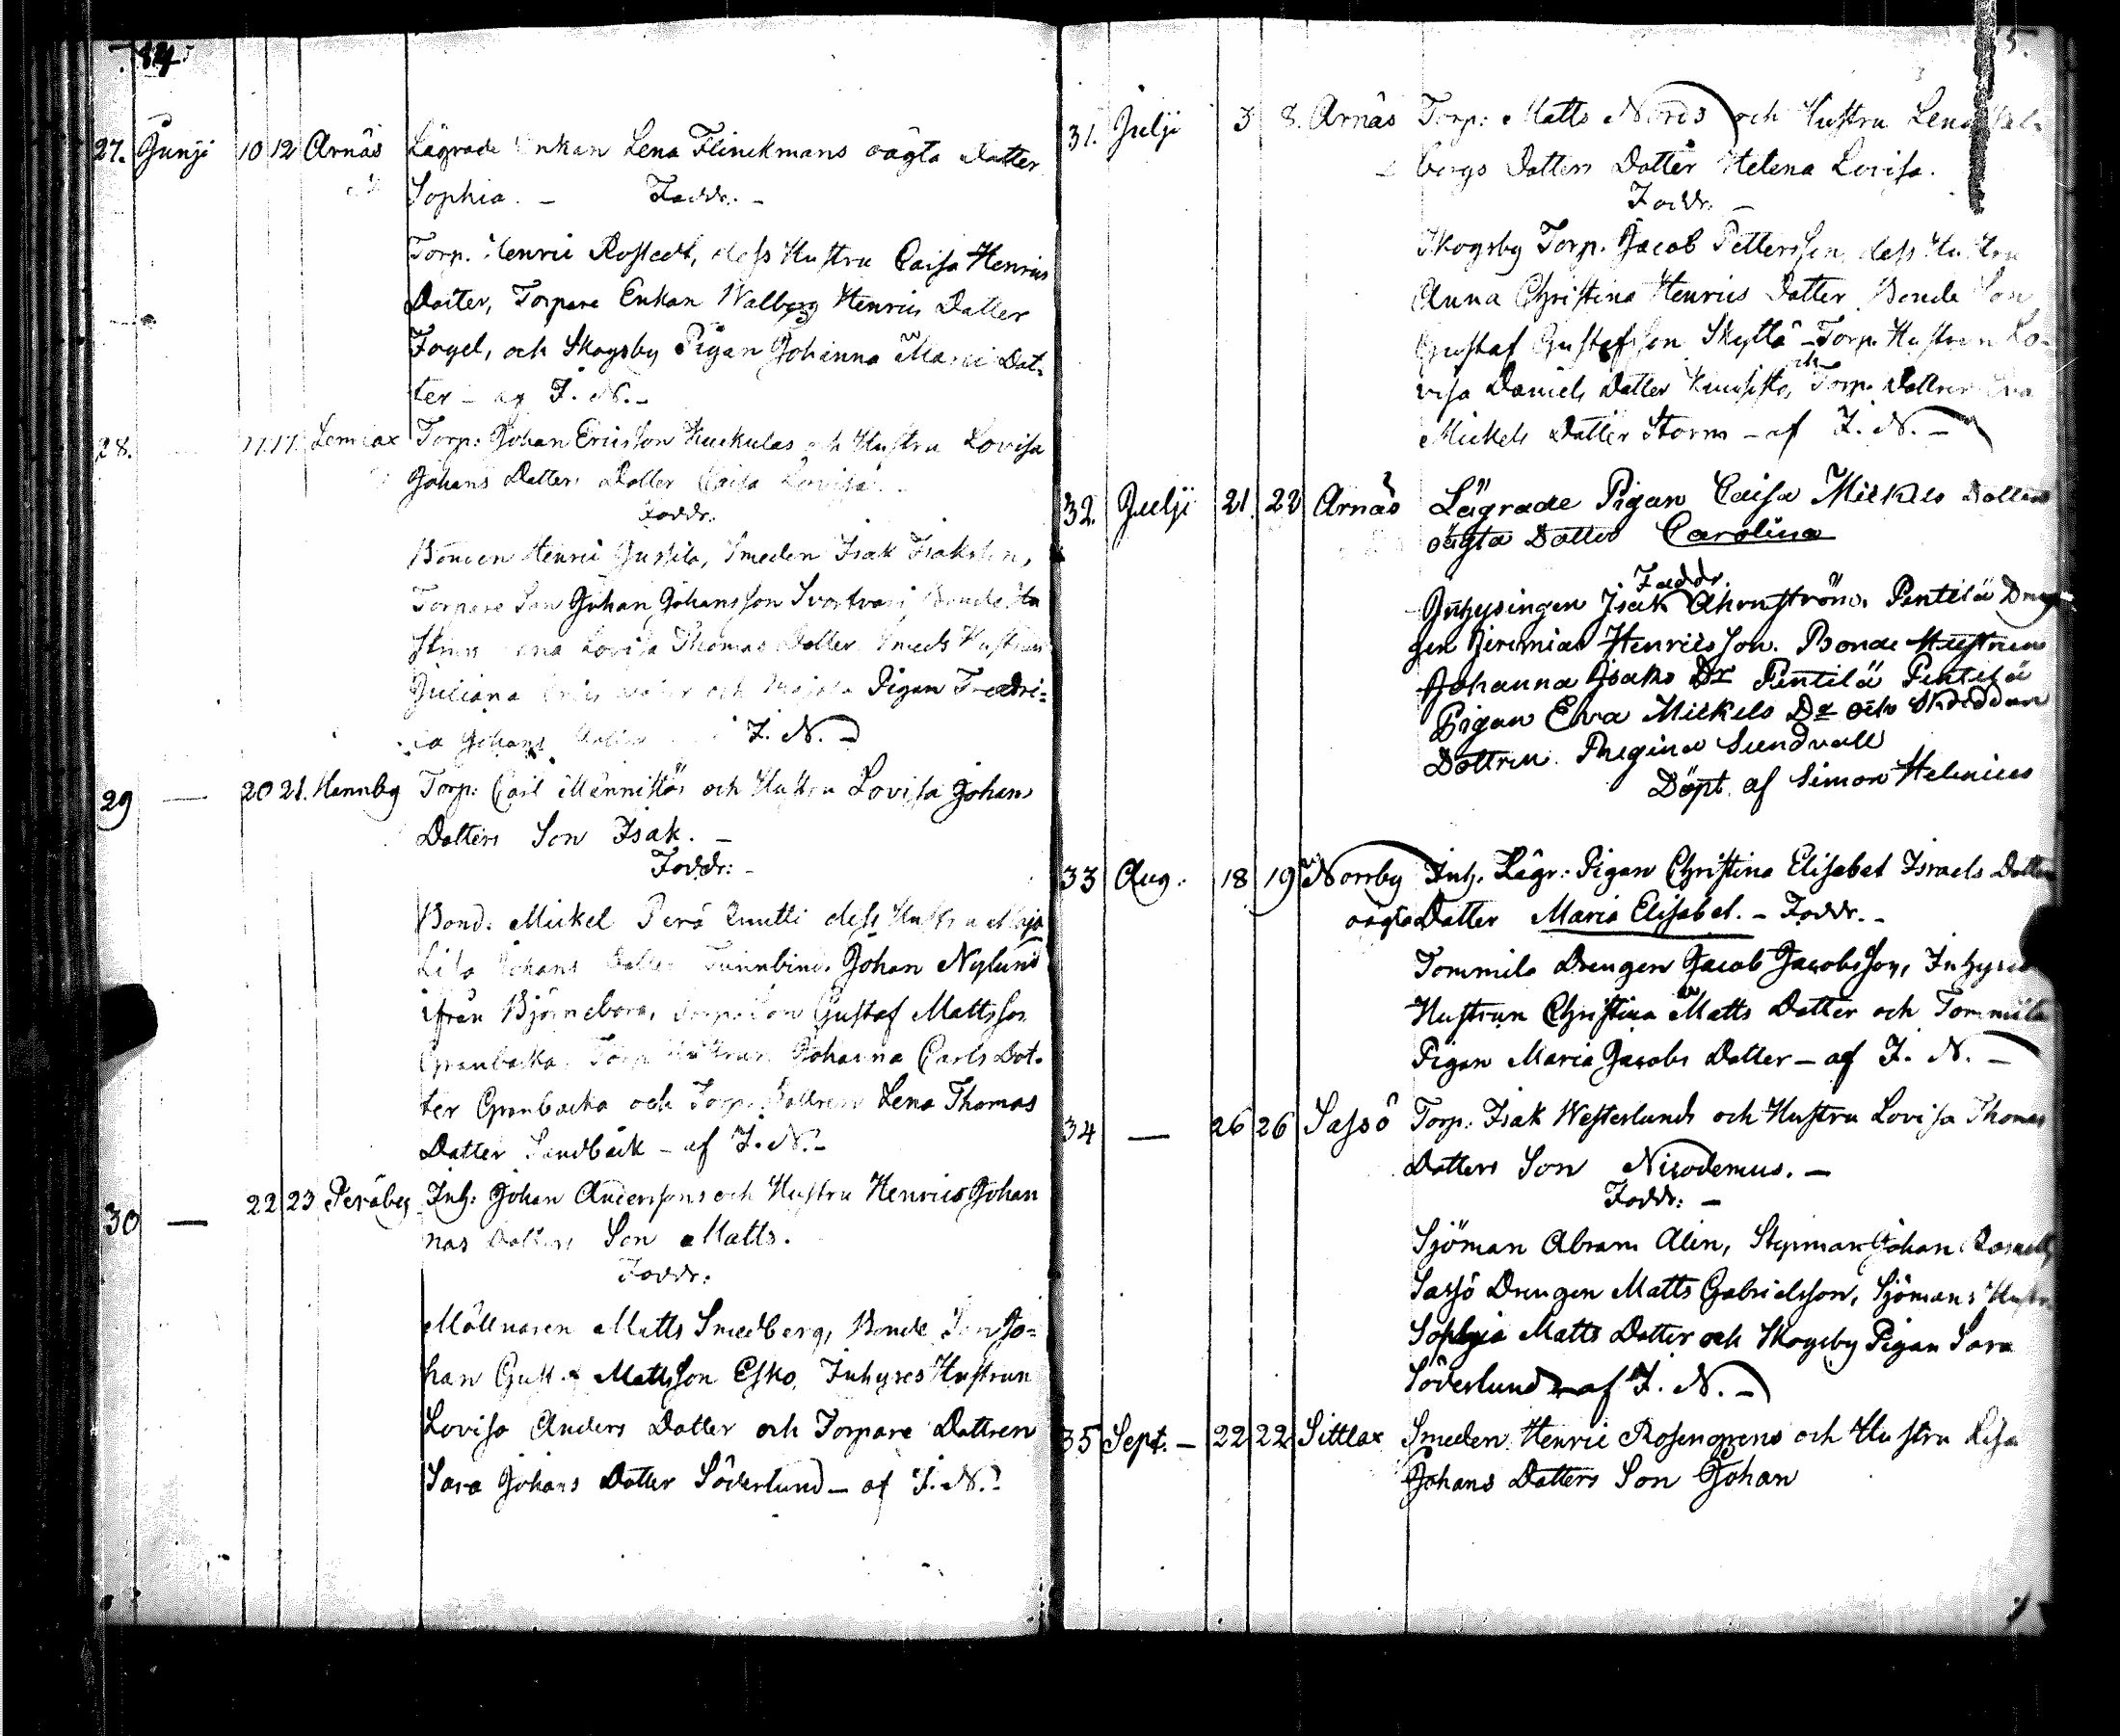 84
27. Junji 10 12 Arnäs Lägrade Enkan Lena Flinckmans oägta Dotter
Sophia. - Faddr. -
Torp. Henric Rostedt, dess Hustru Caisa Henrics
Dotter, Torpare Enkan Walborg Henrics Dotter
Fogel, och Skogsby Pigan Johanna Maria Dot-
ter - af I. N. -
28. 17. 17. Lemlax Torp: Johan Ericsson Kuckulas och Hustru Lovisa
Johans Dotters Dotter Caisa Lovisa.
Faddr.
Bonden Henric Jussila, Smeden Isak Isaksson,
Torpare Son Johan Johansson Svartvari Bonde Hu
strun Lovisa Thomas Dotter Smeds Hustrun
Juliana och Pigan Fredri-
ca Johans Dotter I. N. -
29 — 20 21. Hennby Torp: Carl Männistös och Hustru Lovisa Johans
Dotters Son Isak. -
Faddr: -
Bond. Mickel Perä Qvutti dess Hustru Maja
Lisa Johans Dotter Tunnbind. Johan Nylund
ifrån Björneborg, Torp. Son Gustaf Mattsson
Granbacka, Torp. Hustrun Johanna Carls Dot-
ter Granbacka och Torp. Dottren Lena Thomas
Dotter Sandbäck - af I. N. -
30 — 22 23 Peräby Inh: Johan Anderssons och Hustru Henrica Johan
nas Dotters Son Matts.
Faddr:
Möllnaren Matts Smedberg, Bonde Son Jo-
han Gust. Mattsson Esko, Inhyses Hustrun
Lovisa Anders Dotter och Torpare Dottren
Sara Johans Dotter Söderlund - af I. N. -
5.
31. Julji 3 8. Arnäs Torp: Matts Nords och Hustru Lena
bergs Dotters Dotter Helena Lovisa.
Faddr. -
Skogsby Torp. Jacob Pettersson, dess Hustru
Anna Christina Henrics Dotter Bonde Son
Gustaf Gustafsson Skyttä - Torp. Hustrun Lo-
visa Daniels Dotter och Torp. Dottren Eva
Mickels Dotter Storm - af I. N. -
32. Julji 21. 22 Arnäs Lägrade Pigan Caisa Mickels Dotters
oägta Dotter Carolina
Faddr.
Inhysingen Isak Ahrnström. Pentilä Dren
gen Jeremias Henricsson. Bonde Hustrun
Johanna Isaks Dr Pentilä Pentilä
Pigan Eva Mickels Dr och Skräddar
Dottren. Regina Sundvall
Döpt. af Simon Helenius
33 Aug. 18 19 Norrby Inh. Lägr: Pigan Christina Elisabet Israels Dotters
oägta Dotter Maria Elisabet. - Faddr. -
Tommila Drengen Jacob Jacobsson, Inhyses
Hustrun Christina Matts Dotter och Tommila
Pigan Maria Jacobs Dotter - af I. N. -
34 — 26 26 Sassö Torp: Isak Westerlunds och Hustru Lovisa Thomas
Dotters Son Nicodemus. -
Faddr: -
Sjöman Abram Alin, Styrman Johan
Sassö Drengen Matts Gabrielsson, Sjömans Hustru
Sophia Matts Dotter och Skogsby Pigan Sara
Söderlund - af I. N. -
35 Sept. - 22 22 Sittlax Smeden Henric Rosengrens och Hustru Lisa
Johans Dotters Son Johan